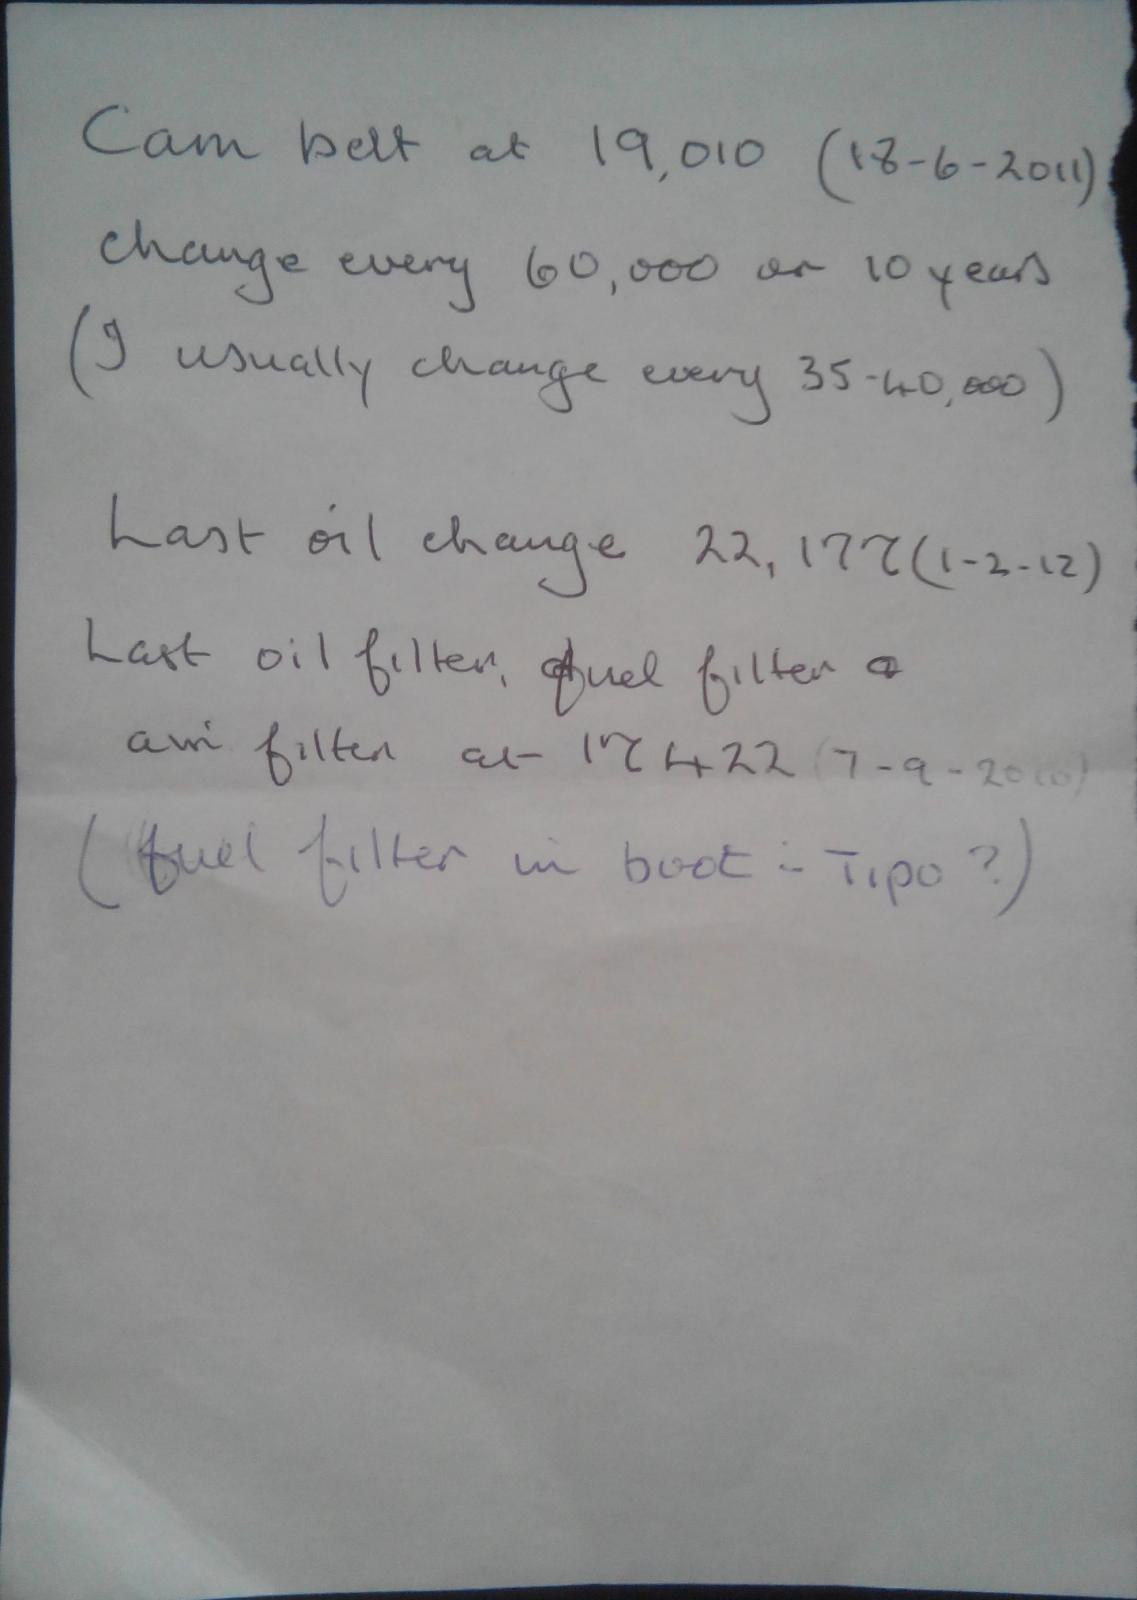 Cam belt at 19,010 (18-6-2011)
change every 60,000 or 10 years
(I usually change every 35-40,000)
Last oil change 22,177 (1-2-12)
Last oil filter, fuel filter &
air filter at 17422 (7-9-2010)
(fuel filter in boot :- Tipo ?)